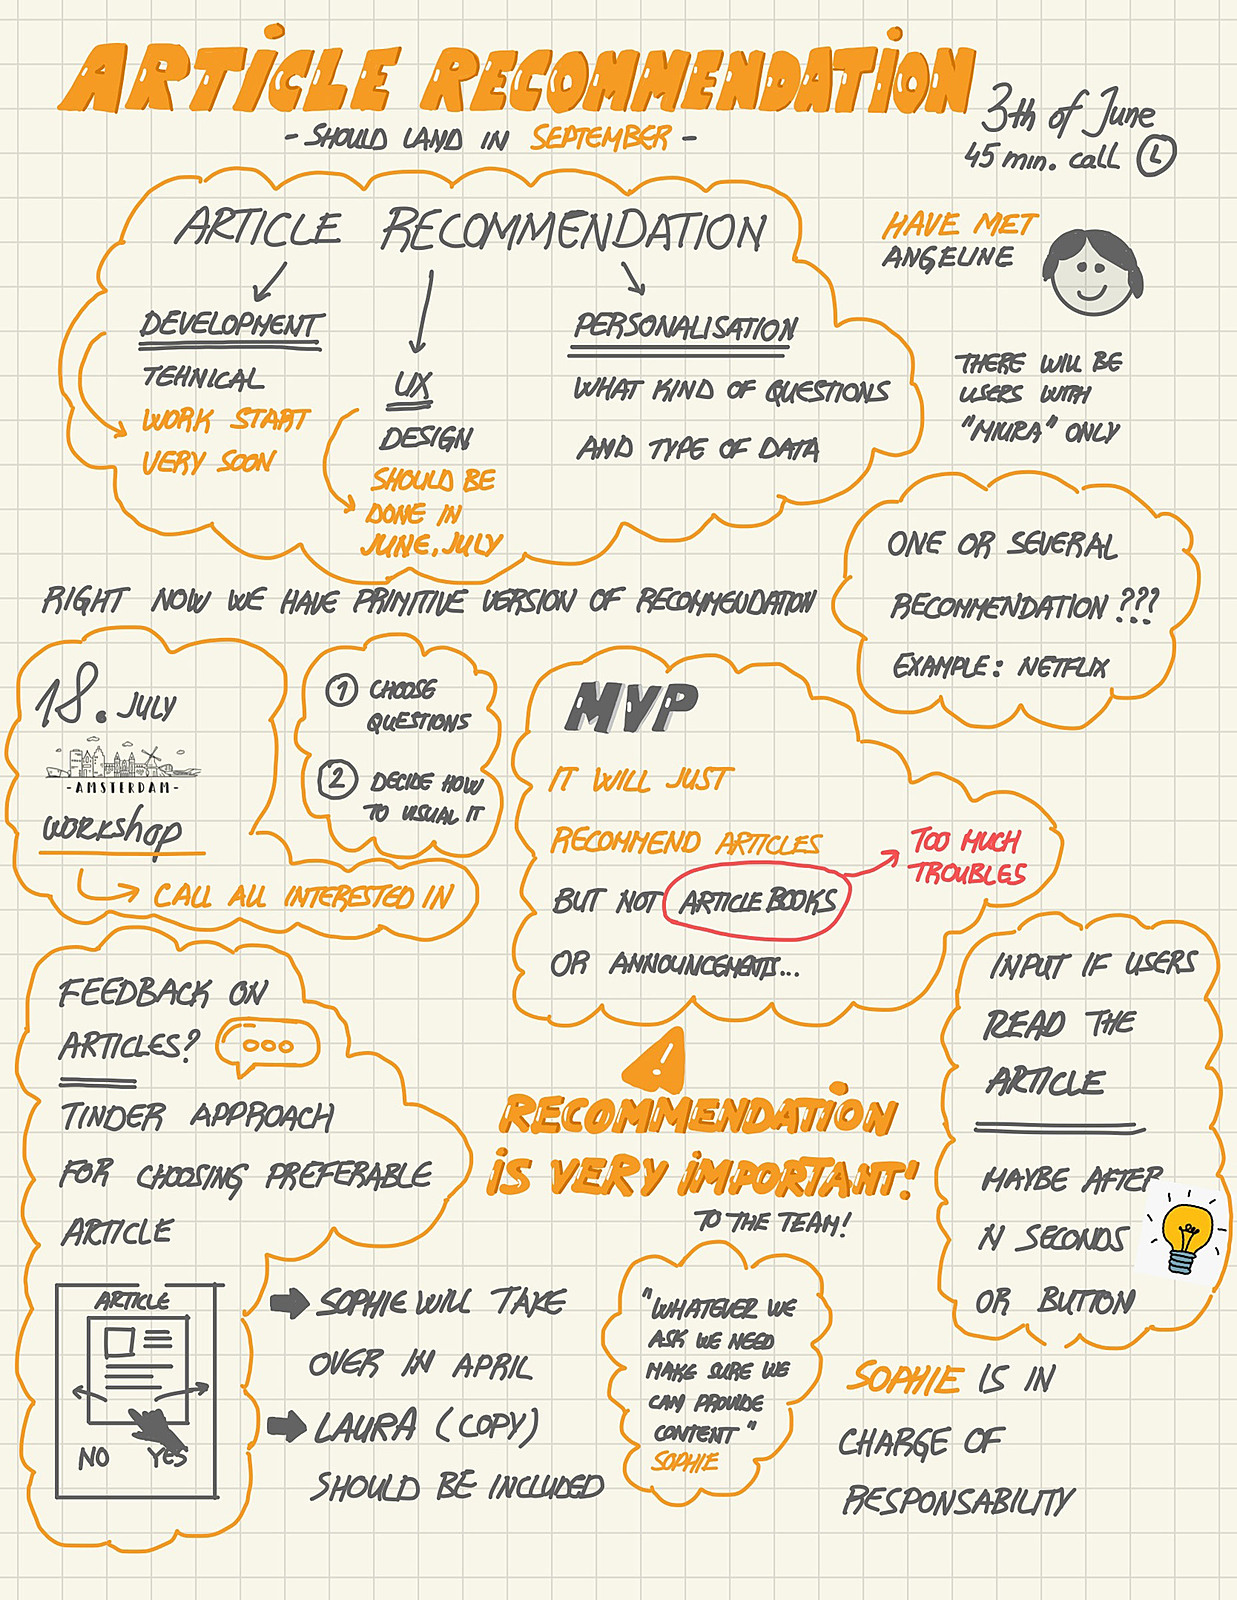 ARTICLE RECOMMENDATION
- SHOULD LAND IN SEPTEMBER -
3th of June
45 min. call
HAVE MET
ANGELINE
ARTICLE RECOMMENDATION
DEVELOPMENT
TEHNICAL
WORK START
VERY SOON
UX
DESIGN
SHOULD BE
DONE IN
JUNE, JULY
PERSONALISATION
WHAT KIND OF QUESTIONS
AND TYPE OF DATA
THERE WILL BE
USERS WITH
"MIURA" ONLY
ONE OR SEVERAL
RECOMMENDATION ???
EXAMPLE: NETFLIX
RIGHT NOW WE HAVE PRIMITIVE VERSION OF RECOMMEUDATION
18. JULY
-AMSTERDAM-
workshop
CALL ALL INTERESTED IN
1 CHOOSE
QUESTIONS
2 DECIDE HOW
TO VISUAL IT
MVP
IT WILL JUST
RECOMMEND ARTICLES
BUT NOT ARTICLE BOOKS
OR ANNOUNCEMENTS...
TOO MUCH
TROUBLES
FEEDBACK ON
ARTICLES?
TINDER APPROACH
FOR CHOOSING PREFERABLE
ARTICLE
ARTICLE
NO YES
!
RECOMMENDATION
IS VERY IMPORTANT!
TO THE TEAM!
INPUT IF USERS
READ THE
ARTICLE
MAYBE AFTER
N SECONDS
OR BUTTON
SOPHIE WILL TAKE
OVER IN APRIL
LAURA (COPY)
SHOULD BE INCLUDED
"WHATEVER WE
ASK WE NEED
MAKE SURE WE
CAN PROVIDE
CONTENT"
SOPHIE
SOPHIE IS IN
CHARGE OF
RESPONSABILITY